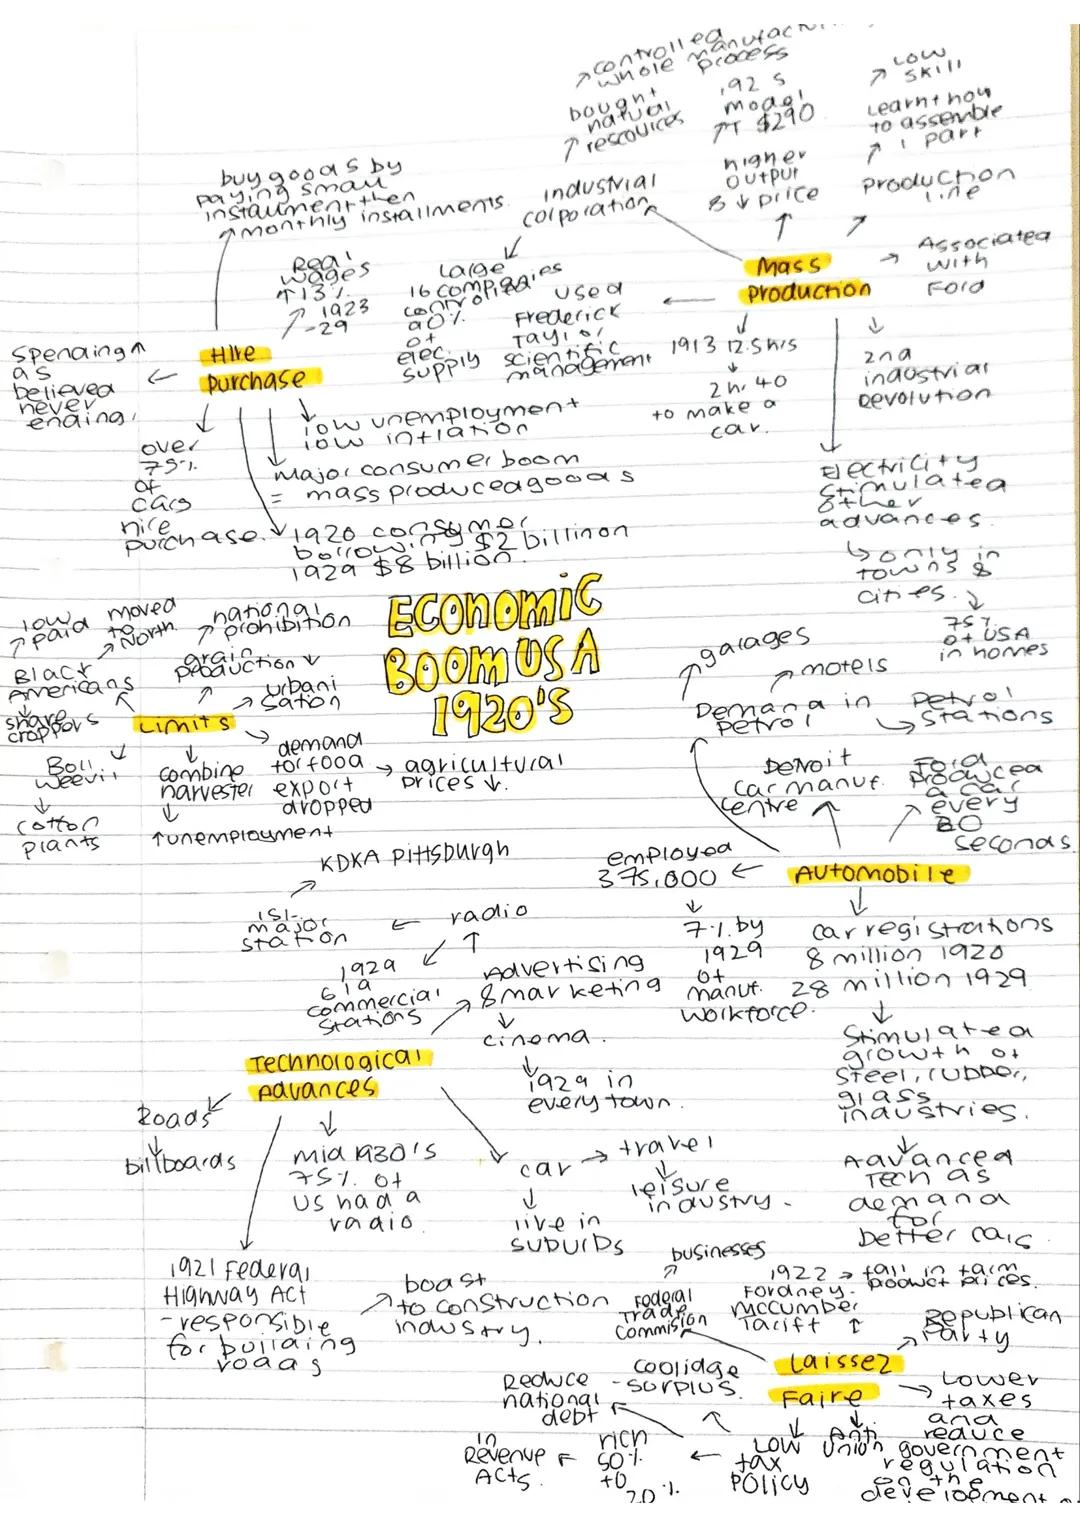 controlled
whole manufactu
process
bought
natural
rescources
industrial
corporation
1925
model
T $290
higher
output
& ↓ price
LOW
SKill
Learnt how
to assemble
1 part
production
line
Mass
production
Associated
with
Ford
2nd
industrial
Revolution
1913 12.5hrs
2hr 40
to make a
car.
used
Frederick
Taylor
scientific
management
Large
16 companies
controlled
90%
of
elec.
supply
Electricity
stimulated
other
advances.
only in
towns &
cities.
75%
of USA
in homes
buy goods by
paying small
instalment then
monthly installments.
Real
wages
↑13%
1923
-29
Hire
purchase
Spending ↑
as
believed
never
ending.
over
75%
of
cars
hire
purchase.
low unemployment
low inflation
Major consumer boom
= mass produced goods
1920 consumer
borrowing $2 billinon
1929 $8 billion.
ECONOMIC
BOOM USA
1920'S
low
paid
moved
to
North
national
prohibition
grain
production ↓
Black
Americans
urbani
sation
share
croppers
Limits
Boll
weevil
cotton
plants
combine
harvester
↑unemployment
demand
for food
export
dropped
agricultural
prices ↓.
garages
motels
Demand in
petrol
Petrol
stations
Detroit
car manuf.
centre
Ford
produced
a car
every
seconds.
AUTOMOBILE
employed
375,000
7% by
1929
of
manuf.
workforce.
car registrations
8 million 1920
28 million 1929
Stimulated
growth of
steel, rubber,
glass
industries.
Advanced
Tech as
demand
for
better cars.
KDKA Pittsburgh
1st
major
station
radio
1929
619
commercial
stations
Advertising
& marketing
cinema.
1929 in
every town.
Technological
Advances
Roads
billboards
mid 1930's
75% of
US had a
radio.
car
travel
leisure
industry.
live in
suburbs
1921 Federal
Highway Act
- responsible
for building
roads
boast
to construction
industry.
businesses
Federal
Trade
Commision
1922
Fordney-
McCumber
Tariff
fall in farm
product prices.
Republican
Party
Laissez
Faire
Lower
taxes
and
reduce
government
regulation
on the
development
Anti
union
LOW
tax
policy
coolidge
- surplus.
Reduce
national
debt
rich
50%
to
20%
in
Revenue
Acts.